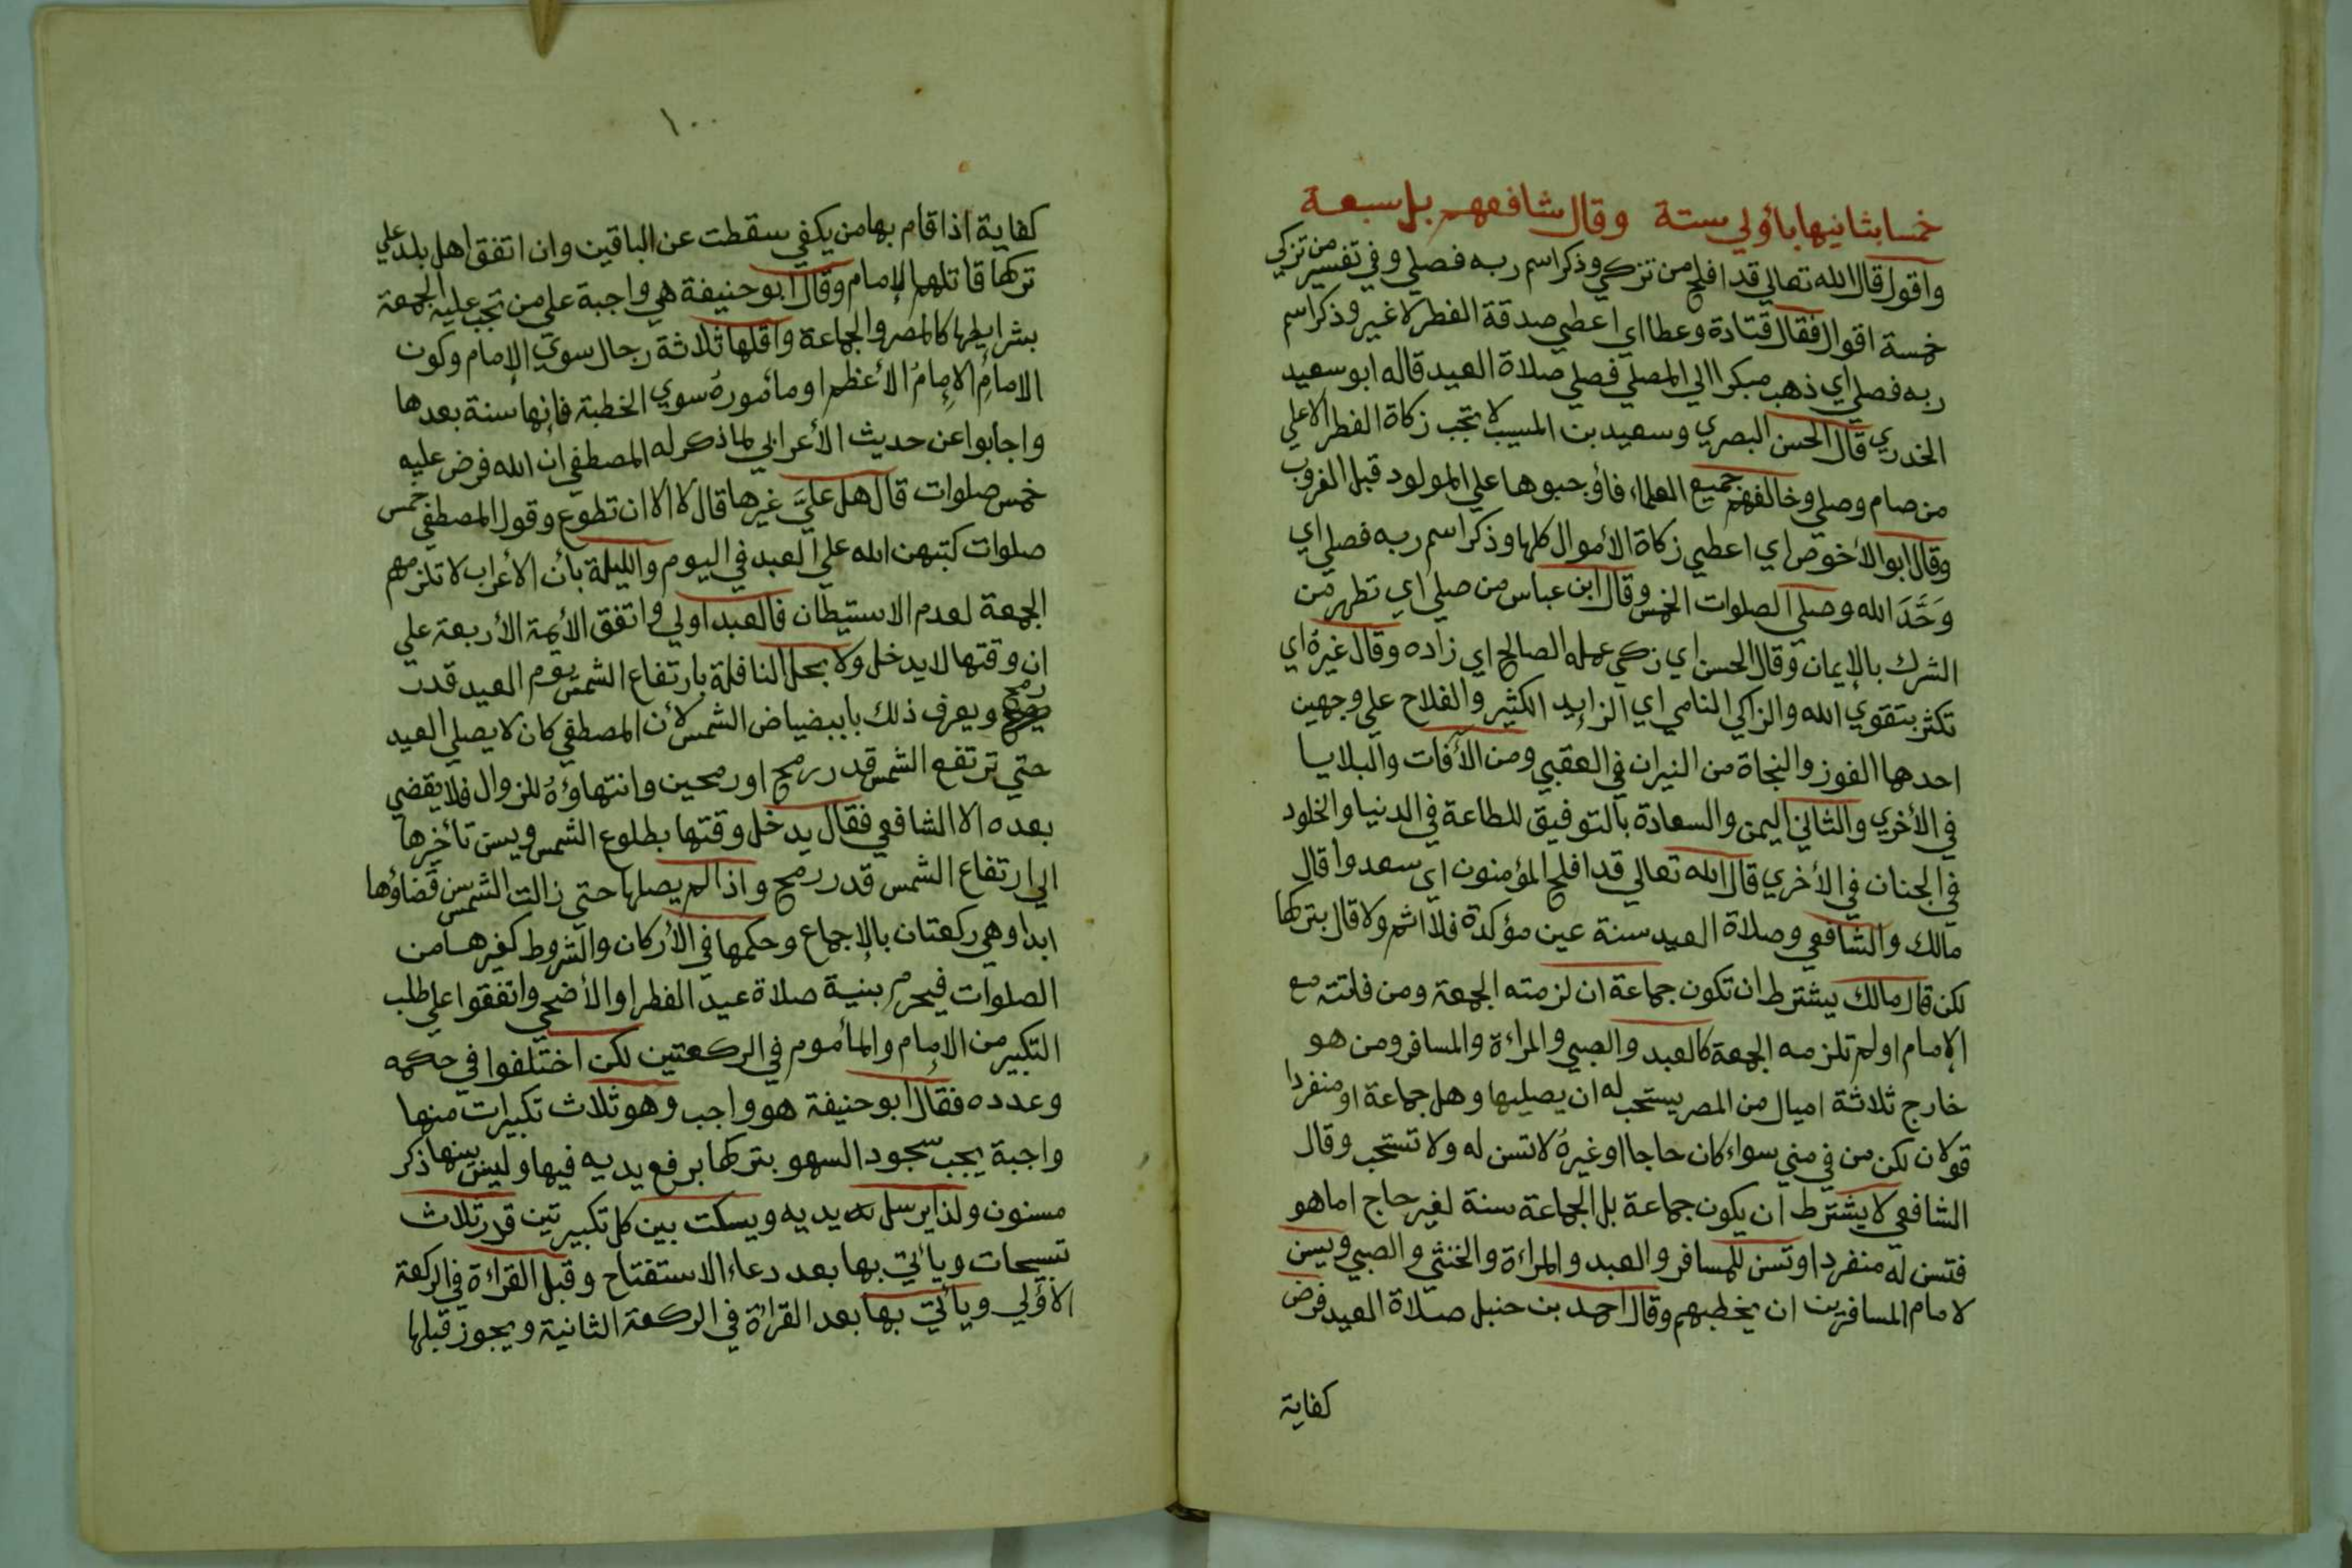 خمسا بثانيها باؤلي ستة وقال شافعهم بل سبعة
واقول قال الله تعالي قد افلح من تزكي وذكر اسم ربه فصلي وفي تفسير من تزكي
خمسة اقوال فقال قتادة وعطا اي اعطي صدقة الفطر لا غير وذكر اسم
ربه فصلي اي ذهب مبكرا الي المصلي فصلي صلاة العيد قاله ابو سعيد
الخدري قال الحسن البصري وسعيد بن المسيب لا تجب زكاة الفطر الا علي
من صام وصلي وخالفهم جميع العلماء فأوجبوها علي المولود قبل الغروب
وقال ابو الأخوص اي اعطي زكاة الأموال كلها وذكر اسم ربه فصلي اي
وَحَّدَ الله وصلي الصلوات الخمس وقال ابن عباس من صلي اي تطهر من
الشرك بالإيمان وقال الحسن اي زكي عمله الصالح اي زاده وقال غيرهُ اي
تكثر بتقوي الله والزاكي النامي اي الزايد الكثير والفلاح علي وجهين
احدها الفوز والنجاة من النيران في العقبي ومن الآفات والبلايا
في الأخري والثاني اليمن والسعادة بالتوفيق للطاعة في الدنيا والخلود
في الجنان في الأخري قال الله تعالي قد افلح المؤمنون اي سعدوا قال
مالك والشافعي وصلاة العيد سنة عين مؤكدة فلا اثم ولا قال بتركها
لكن قال مالك يشترط ان تكون جماعة ان لزمته الجمعة ومن فاتته مع
الإمام او لم تلزمه الجمعة كالعبد والصبي والمراءة والمسافر ومن هو
خارج ثلاثة اميال من المصر يستحب له ان يصليها وهل جماعة او منفردا
قولان لكن من في مني سواء كان حاجا او غيرهُ لا تسن له ولا تستحب وقال
الشافعي لا يشترط ان يكون جماعة بل الجماعة سنة لغير حاج اما هو
فتسن له منفردا وتسن للمسافر والعبد والمراءة والخنثي والصبي ويسن
لامام المسافرين ان يخطبهم وقال احمد بن حنبل صلاة العيد فرض
كفاية
١٠٠
كفاية اذا قام بها من يكفي سقطت عن الباقين وان اتفق اهل بلد علي
تركها قاتلهم الإمام وقال ابو حنيفة هي واجبة علي من تجب عليه الجمعة
بشرايطها كالمصر والجماعة واقلها ثلاثة رجال سوي الإمام وكون
الامامِ الإمامُ الأعظم او مأمورهُ سوي الخطبة فإنها سنة بعدها
واجابوا عن حديث الأعرابي لما ذكر له المصطفي ان الله فرض عليه
خمس صلوات قال هل عليَّ غيرها قال لا الا ان تطوع وقول المصطفي خمس
صلوات كتبهن الله علي العبد في اليوم والليلة بأن الأعراب لا تلزمهم
الجمعة لعدم الاستيطان فالعبد اولي واتفق الأيمة الأربعة علي
ان وقتها لا يدخل ولا يحل النافلة بارتفاع الشمس يوم العيد قدر
رمح ويعرف ذلك بابيضياض الشمس لأن المصطفي كان لا يصلي العيد
حتي ترتفع الشمس قدر رمح او رمحين وانتهاؤهُ للزوال فلا يقضي
بعده الا الشافعي فقال يدخل وقتها بطلوع الشمس ويسن تأخيرها
الي ارتفاع الشمس قدر رمح واذا لم يصلها حتي زالت الشمس سن قضاؤها
ابدا وهي ركعتان بالإجماع وحكمها في الأركان والشروط كغيرها من
الصلوات فيحرم بنية صلاة عيد الفطر او الأضحي واتفقوا علي طلب
التكبير من الإمام والمأموم في الركعتين لكن اختلفوا في حكمه
وعدده فقال ابو حنيفة هو واجب وهو ثلاث تكبيرات منها
واجبة يجب سجود السهو بتركها برفع يديه فيها وليس بينها ذكر
مسنون ولذا يرسل يديه ويسكت بين كل تكبيرتين قدر ثلاث
تسبيحات ويأتي بها بعد دعاء الاستفتاح وقبل القراءة في الركعة
الاؤلي ويأتي بها بعد القراءة في الركعة الثانية ويجوز قبلها